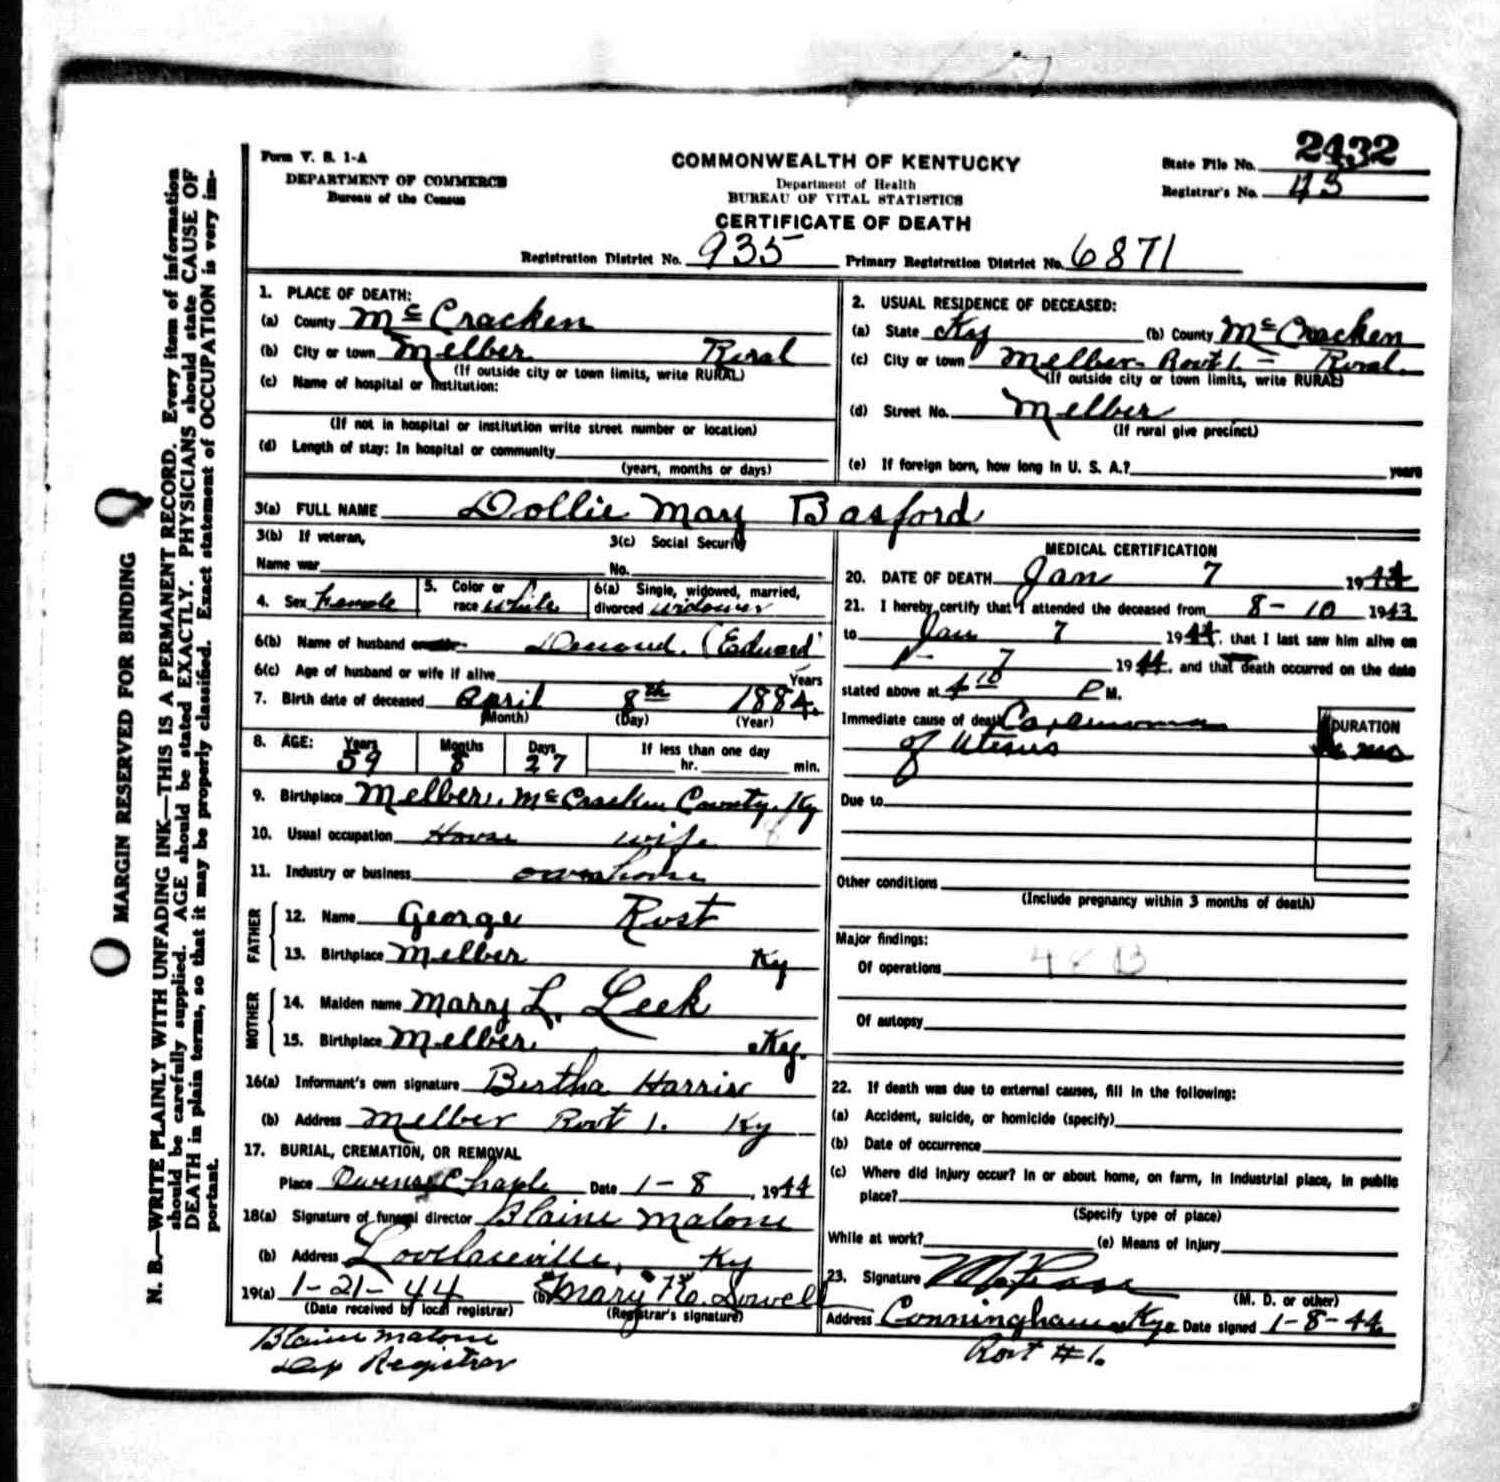 Form V. S. 1-A
DEPARTMENT OF COMMERCE
Bureau of the Census
COMMONWEALTH OF KENTUCKY
Department of Health
BUREAU OF VITAL STATISTICS
CERTIFICATE OF DEATH
State File No. 2432
Registrar's No. 43
Registration District No. 935 Primary Registration District No. 6871
1. PLACE OF DEATH:
(a) County McCracken
(b) City or town Melber Rural
(If outside city or town limits, write RURAL)
(c) Name of hospital or institution:
(If not in hospital or institution write street number or location)
(d) Length of stay: In hospital or community
(years, months or days)
2. USUAL RESIDENCE OF DECEASED:
(a) State Ky (b) County McCracken
(c) City or town Melber - Rout 1. - Rural.
(If outside city or town limits, write RURAL)
(d) Street No. Melber
(If rural give precinct)
(e) If foreign born, how long in U. S. A.? years
3(a) FULL NAME Dollie May Basford
3(b) If veteran,
Name war
3(c) Social Security
No.
4. Sex Female 5. Color or race white 6(a) Single, widowed, married, divorced widower
6(b) Name of husband or wife Desoud. (Edward)
6(c) Age of husband or wife if alive Years
7. Birth date of deceased April 8th 1884.
(Month) (Day) (Year)
8. AGE: Years 59 Months 8 Days 27 If less than one day
hr. min.
9. Birthplace Melber, McCracken County, Ky
10. Usual occupation House wife
11. Industry or business own home
FATHER
12. Name George Rust
13. Birthplace Melber Ky
MOTHER
14. Maiden name Mary L. Leek
15. Birthplace Melber, Ky.
16(a) Informant's own signature Bertha Harris
(b) Address Melber Rout 1. Ky
17. BURIAL, CREMATION, OR REMOVAL
Place Owens Chaple Date 1-8, 1944
18(a) Signature of funeral director Blaine Malone
(b) Address Lovelaceville, Ky
19(a) 1-21-44 (b) Mary Lowell
(Date received by local registrar) (Registrar's signature)
Blaine Malone
Dep Registrar
MEDICAL CERTIFICATION
20. DATE OF DEATH Jan 7 1944
21. I hereby certify that I attended the deceased from 8-10 1943
to Jan 7 1944, that I last saw him alive on
1- 7 1944. and that death occurred on the date
stated above at 4 10 P M.
Immediate cause of death
of Uterus
DURATION
mo
Due to
Other conditions
(Include pregnancy within 3 months of death)
Major findings:
Of operations 48 B
Of autopsy
22. If death was due to external causes, fill in the following:
(a) Accident, suicide, or homicide (specify)
(b) Date of occurrence
(c) Where did injury occur? In or about home, on farm, in industrial place, in public
place?
(Specify type of place)
While at work? (e) Means of Injury
23. Signature
(M. D. or other)
Address Conningham Ky Date signed 1-8-44
Rout #1.
MARGIN RESERVED FOR BINDING
N. B.—WRITE PLAINLY WITH UNFADING INK—THIS IS A PERMANENT RECORD. Every item of information
should be carefully supplied. AGE should be stated EXACTLY. PHYSICIANS should state CAUSE OF
DEATH in plain terms, so that it may be properly classified. Exact statement of OCCUPATION is very im-
portant.